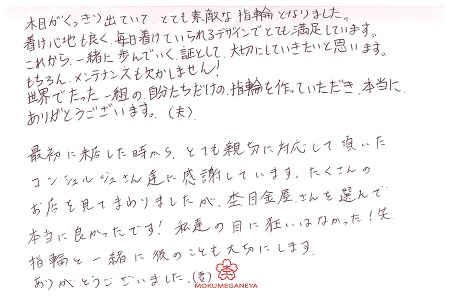 木目がくっきり出ていて、とても素敵な指輪となりました。
着け心地も良く、毎日着けていられるデザインでとても満足しています。
これから、一緒に歩んでいく証として、大切にしていきたいと思います。
もちろん、メンテナンスも欠かしません！
世界でたった一組の、自分たちだけの指輪を作っていただき、本当に
ありがとうございます。(夫)
最初に来店した時から、とても親切に対応して頂いた
コンシェルジュさん達に感謝しています。たくさんの
お店を見てまわりましたが、杢目金屋さんを選んで
本当に良かったです！私達の目に狂いはなかった！笑
指輪と一緒に彼のことも大切にします。
ありがとうございました。(妻)
MOKUMEGANEYA